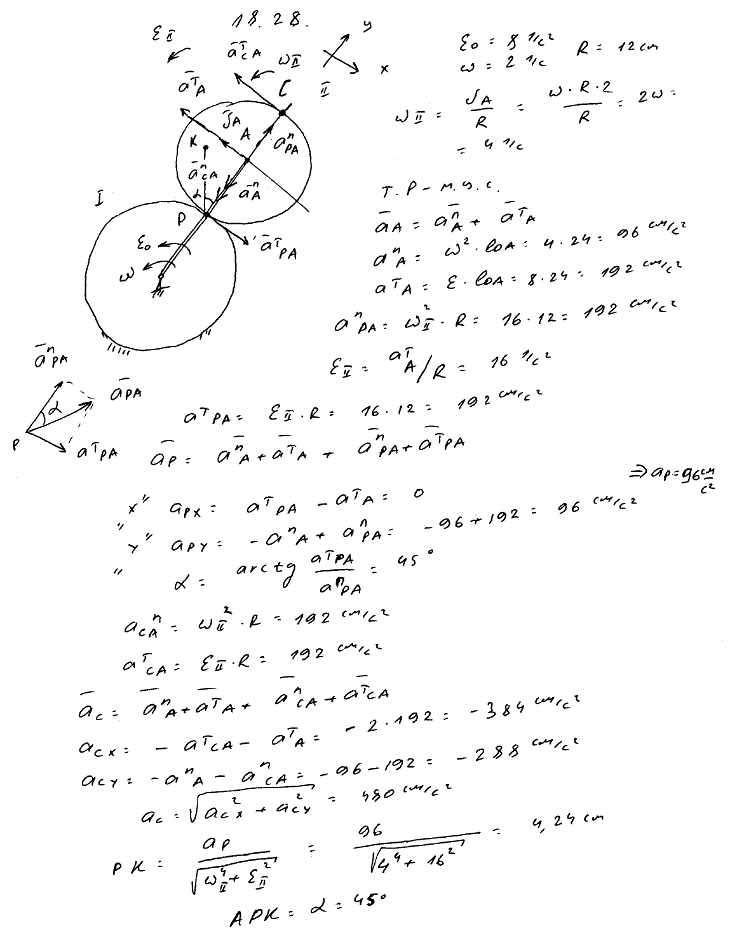 18.28.
ε_II
ā^τ_CA
ω_II
y
x
ā^τ_A
C
II
V̄_A
A
ā^n_PA
K
ā^n_CA
α
ā^n_A
I
P
ε_0
ā^τ_PA
ω
ε_0 = 8 1/c²
R = 12 см
ω = 2 1/c
ω_II = V_A/R = ω·R·2/R = 2ω =
= 4 1/c
т. P - м.ц.с.
ā_A = ā^n_A + ā^τ_A
a^n_A = ω²·l_OA = 4·24 = 96 см/c²
a^τ_A = ε·l_OA = 8·24 = 192 см/c²
a^n_PA = ω²_II·R = 16·12 = 192 см/c²
ε_II = a^τ_A/R = 16 1/c²
ā^n_PA
ā_PA
α
P
a^τ_PA
a^τ_PA = ε_II·R = 16·12 = 192 см/c²
ā_P = ā^n_A + ā^τ_A + ā^n_PA + ā^τ_PA
"x" a_PX = a^τ_PA - a^τ_A = 0
⇒ a_P = 96 см/c²
"y" a_PY = -a^n_A + a^n_PA = -96 + 192 = 96 см/c²
" α = arctg a^τ_PA/a^n_PA = 45°
a^n_CA = ω_II²·R = 192 см/c²
a^τ_CA = ε_II·R = 192 см/c²
ā_C = ā^n_A + ā^τ_A + ā^n_CA + ā^τ_CA
a_CX = -a^τ_CA - a^τ_A = -2·192 = -384 см/c²
a_CY = -a^n_A - a^n_CA = -96-192 = -288 см/c²
a_C = √(a_CX² + a_CY²) = 480 см/c²
PK = a_P/√(ω_II⁴ + ε_II²) = 96/√(4⁴ + 16²) = 4,24 см
APK = α = 45°